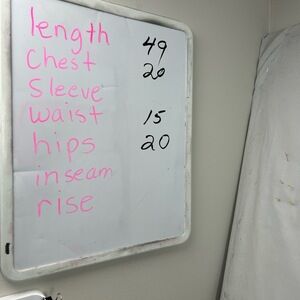 length 49
Chest 20
Sleeve
waist 15
hips 20
inseam
rise